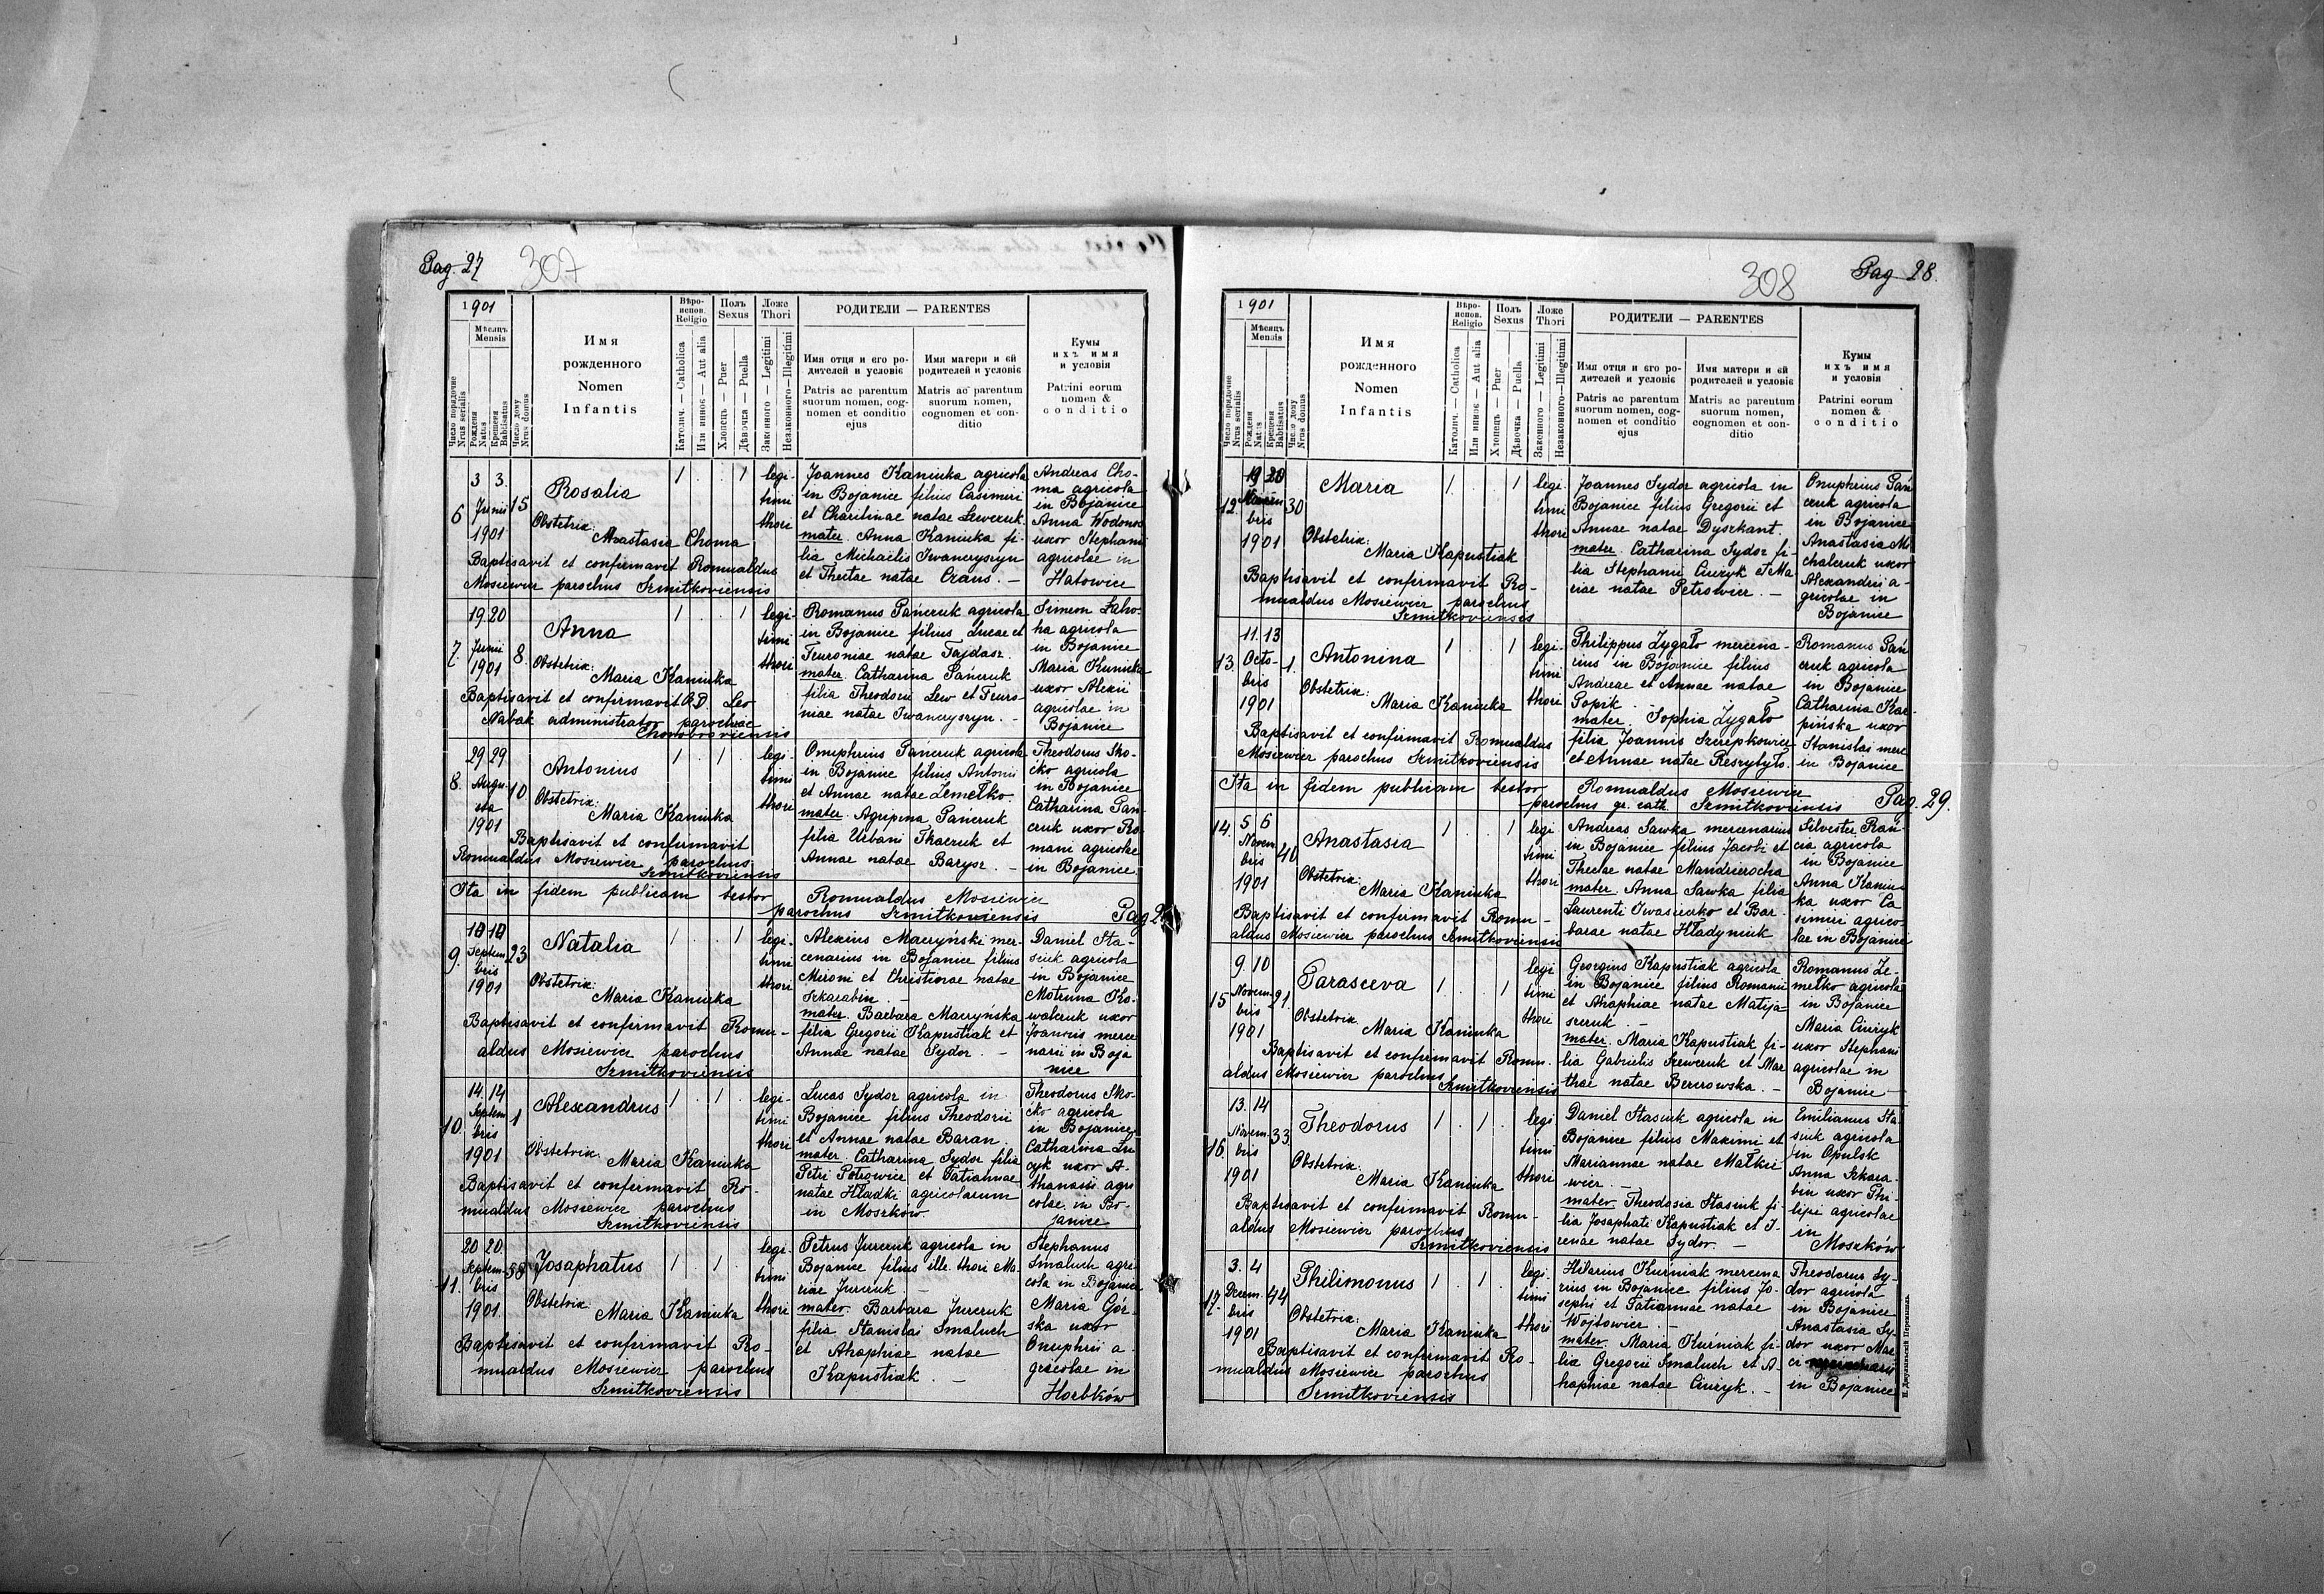 Pag. 27
307
1901
Мѣсяцъ
Mensis
Число порядочне
Nrus serialis
Рождена
Natus
Крещена
Babtisatus
Число дому
Nrus domus
Имя
рожденного
Nomen
Infantis
Вѣро-
испов.
Religio
Католич. — Catholica
Или инное — Aut alia
Полъ
Sexus
Хлопецъ — Puer
Дѣвочка — Puella
Ложе
Thori
Законного — Legitimi
Незаконного — Illegitimi
РОДИТЕЛИ — PARENTES
Имя отця и его ро-
дителей и условіє
Patris ac parentum
suorum nomen, cog-
nomen et conditio
ejus
Имя матери и єй
родителей и условіє
Matris ac parentum
suorum nomen,
cognomen et con-
ditio
Кумы
ихъ имя
и условія
Patrini eorum
nomen &
conditio
6
3 3.
Junii
1901
15
Rosalia
Obstetrix:
Anastasia Choma
Baptisavit et confirmavit Romualdus
Mosiewicz parochus Szmitkoviensis
1 . . 1
legi-
timi
thori
Joannes Kaniuka agricola
in Bojanice filius Casimiri
et Charitinae natae Szewczuk.
mater. Anna Kaniuka fi-
lia Michaelis Iwanczyszyn
et Theclae natae Craus. —
Andreas Cho-
ma agricola
in Bojanice
Anna Wodonos
uxor Stephani
agricolae in
Hatowice
7.
19. 20
Junii
1901
8.
Anna
Obstetrix:
Maria Kaniuka
Baptisavit et confirmavit R.D. Leo
Nabak administrator parochiae
Choroboviensis
1 . . 1
legi-
timi
thori
Romanus Pańczuk agricola
in Bojanice filius Lucae et
Feuroniae natae Gajdasz.
mater. Catharina Pańczuk
filia Theodorii Lew et Feuro-
niae natae Iwanczyszyn. —
Simeon Łaho-
ha agricola
in Bojanice
Maria Kunicka
uxor Alexii
agricolae in
Bojanice
8.
29 29
Augu-
sta
1901
10
Antonius
Obstetrix:
Maria Kaniuka
Baptisavit et confirmavit
Romualdus Mosiewicz parochus
Szmitkoviensis
1 . 1 .
legi-
timi
thori
Onuphrius Panczuk agricola
in Bojanice filius Antonii
et Annae natae Zemełko.
mater. Agripina Panczuk
filia Urbani Tkaczuk et
Annae natae Barysz. —
Theodorus Sko-
ćko agricola
in Bojanice
Catharina Pan-
czuk uxor Ro-
mani agricolae
in Bojanice
Ita in fidem publicam testor Romualdus Mosiewicz
parochus Szmitkoviensis
9.
Septem
bris
1901
23
Natalia
Obstetrix:
Maria Kaniuka
Baptisavit et confirmavit Romu-
aldus Mosiewicz parochus
Szmitkoviensis
1 . . 1
legi-
timi
thori
Alexius Maczyński mer-
cenarius in Bojanice filius
Mironi et Christinae natae
Szkarabin. —
mater. Barbara Maczyńska
filia Gregorii Kapustiak et
Annae natae Sydor. —
Daniel Sta-
siuk agricola
in Bojanice
Motruna Ko-
walczuk uxor
Joannis merce
narii in Boja
nice
10.
14. 14
Septem
bris
1901
1
Alexandrus
Obstetrix:
Maria Kaniuka
Baptisavit et confirmavit Ro-
mualdus Mosiewicz parochus
Szmitkoviensis
1 . 1 .
legi-
timi
thori
Lucas Sydor agricola in
Bojanice filius Theodorii
et Annae natae Baran.
mater. Catharina Sydor filia
Petri Petrowicz et Tatiannae
natae Hładki agricolarum
in Moszków.
Theodorus Sko-
ćko agricola
in Bojanice
Catharina Lu
cyk uxor A-
thanasii agri
colae in Bo-
janice
11.
20 20.
Septem-
bris
1901.
58
Josaphatus
Obstetrix:
Maria Kaniuka
Baptisavit et confirmavit Ro-
mualdus Mosiewicz parochus
Szmitkoviensis
1 . 1 .
legi-
timi
thori
Petrus Jurczuk agricola in
Bojanice filius ille. thori Ma-
riae Jurczuk. —
mater. Barbara Jurczuk
filia Stanislai Smaluch
et Ahaphiae natae
Kapustiak. —
Stephanus
Smaluch agri
cola in Bojanice
Maria Gór-
ska uxor
Onuphrii a-
gricolae in
Horbków
308
Pag 28.
1901
Мѣсяцъ
Mensis
Число порядочне
Nrus serialis
Рождена
Natus
Крещена
Babtisatus
Число дому
Nrus domus
Имя
рожденного
Nomen
Infantis
Вѣро-
испов.
Religio
Католич. — Catholica
Или инное — Aut alia
Полъ
Sexus
Хлопецъ — Puer
Дѣвочка — Puella
Ложе
Thori
Законного — Legitimi
Незаконного — Illegitimi
РОДИТЕЛИ — PARENTES
Имя отця и его ро-
дителей и условіє
Patris ac parentum
suorum nomen, cog-
nomen et conditio
ejus
Имя матери и єй
родителей и условіє
Matris ac parentum
suorum nomen,
cognomen et con-
ditio
Кумы
ихъ имя
и условія
Patrini eorum
nomen &
conditio
12.
19 20
bris
1901
30
Maria
Obstetrix:
Maria Kapustiak
Baptisavit et confirmavit Ro-
mualdus Mosiewicz parochus
Szmitkoviensis
1 . . 1
legi
timi
thori
Joannes Sydor agricola in
Bojanice filius Gregorii et
Annae natae Dyszkant.
mater. Catharina Sydor fi-
lia Stephanii Ciużyk et Ma-
riae natae Petrowicz. —
Onuphrius Pań
czuk agricola
in Bojanice
Anastasia Mi
chalczuk uxor
Alexandri a-
gricolae in
Bojanice
13.
11. 13
Octo-
bris
1901
1.
Antonina
Obstetrix:
Maria Kaniuka
Baptisavit et confirmavit Romualdus
Mosiewicz parochus Szmitkoviensis
1 . . 1
legi-
timi
thori
Philippus Zygało mercena-
rius in Bojanice filius
Andreae et Annae natae
Popik. —
mater. Sophia Zygało
filia Joannis Szczepkowicz
et Annae natae Reszytyło.
Romanus Pań
czuk agricola
in Bojanice
Catharina Kar
pińska uxor
Stanislai merc
in Bojanice
Ita in fidem publicam testor Romualdus Mosiewicz
parochus gr. cath. Szmitkoviensis Pag. 29.
14.
5 6
Novem
bris
1901
40
Anastasia
Obstetrix:
Maria Kaniuka
Baptisavit et confirmavit Romu-
aldus Mosiewicz parochus Szmitkoviensis
1 . . 1
legi
timi
thori
Andreas Sawka mercenarius
in Bojanice filius Jacobi et
Theclae natae Mandzierocha
mater. Anna Sawka filia
Laurenti Iwasieczko et Bar-
barae natae Hładyniuk
Silvester Rań-
cia agricola
in Bojanice
Anna Kaniu-
ka uxor Ca
simiri agrico-
lae in Bojanice
15
9. 10
Novem-
bris
1901
91.
Parasceva
Obstetrix
Maria Kaniuka
Baptisavit et confirmavit Romu-
aldus Mosiewicz parochus
Szmitkoviensis
1 . 1
legi
timi
thori
Georgius Kapustiak agricola
in Bojanice filius Romanii
et Ahaphiae natae Matija-
szczuk. —
mater. Maria Kapustiak fi-
lia Gabrielis Szewczuk et Mar
thae natae Berezowska. —
Romanus Ze-
mełko agricola
in Bojanice
Maria Ciużyk
uxor Stephani
agricolae in
Bojanice
16.
13. 14
Novem-
bris
1901
33.
Theodorus
Obstetrix:
Maria Kaniuka
Baptisavit et confirmavit Romu-
aldus Mosiewicz parochus
Szmitkoviensis
1 . 1 .
legi
timi
thori
Daniel Stasiuk agricola in
Bojanice filius Maximi et
Mariannae natae Małkie
wicz. —
mater. Theodosia Stasiuk fi-
lia Josaphati Kapustiak et I-
renae natae Sydor. —
Emilianus Sta-
siuk agricola
in Opulsk
Anna Szkara-
bin uxor Phi-
lipi agricolae
in
Moszków
17.
3. 4
Decem-
bris
1901
44
Philimonus
Obstetrix:
Maria Kaniuka
Baptisavit et confirmavit Ro-
mualdus Mosiewicz parochus
Szmitkoviensis
1 . 1 .
legi-
timi
thori
Hilarius Kuśniak mercena
rius in Bojanice filius Jo-
sephi et Tatiannae natae
Wojtowicz. —
mater. Maria Kuśniak fi-
lia Gregorii Smaluch et A-
haphiae natae Ciużyk. —
Theodorus Sy-
dor agricola
in Bojanice
Anastasia Sy-
dor uxor Mar
ci
in Bojanice